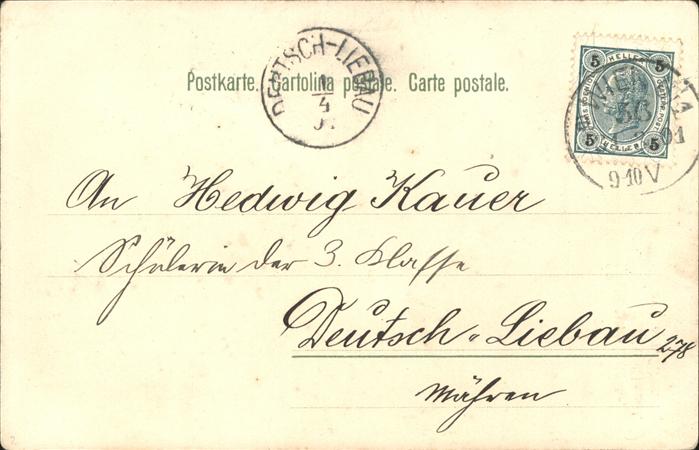 DEUTSCH-LIEBAU
1
4
Postkarte. Cartolina postale. Carte postale.
5 HELLER 5
5 HELLER 5
WIEN
56
9-10 V
An Hedwig Kauer
Schülerin der 3. Klasse
Deutsch-Liebau 278
Mähren